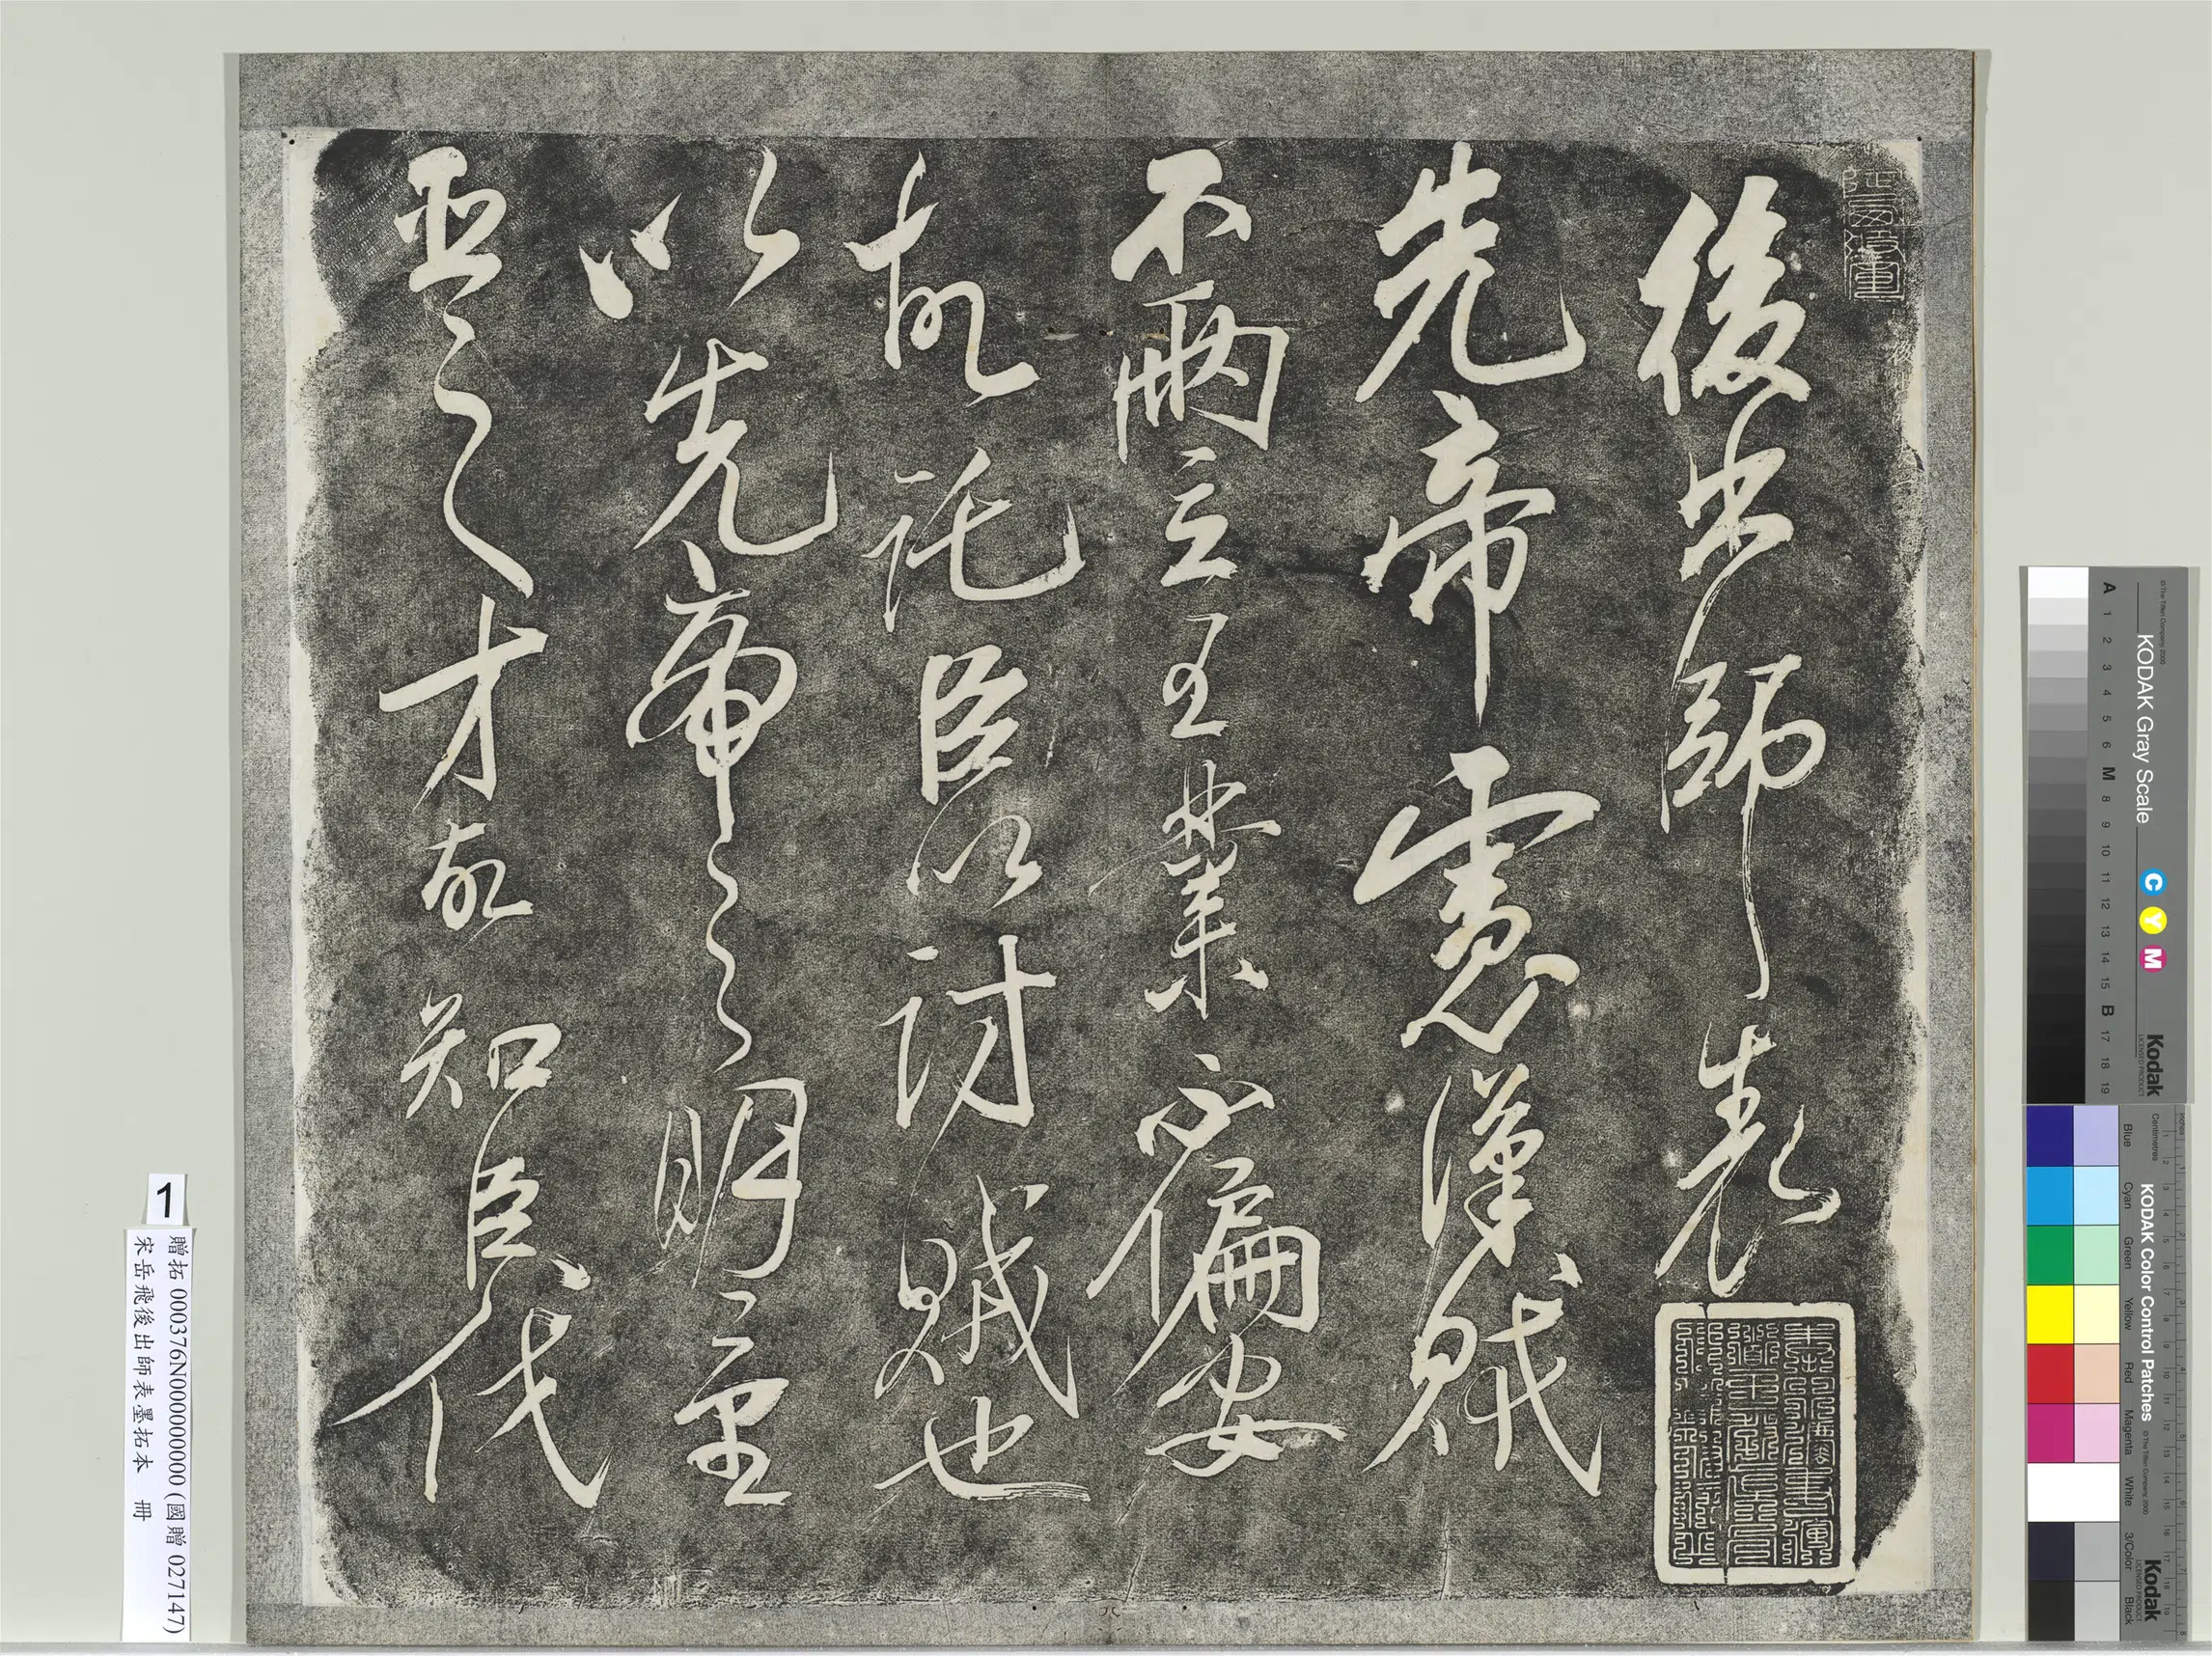 後出師表
先帝慮漢賊
不兩立王業不偏安
故託臣以討賊也
以先帝之明量
臣之才故知臣伐
1
贈拓 000376N000000000 (國贈 027147)
宋岳飛後出師表墨拓本 冊
KODAK Gray Scale
A 1 2 3 4 5 6 M 8 9 10 11 12 13 14 15 B 17 18 19
C Y M
Kodak
LICENSED PRODUCT
© The Tiffen Company, 2000
KODAK Color Control Patches
© The Tiffen Company, 2000
Blue Cyan Green Yellow Red Magenta White 3/Color Black
Kodak
LICENSED PRODUCT